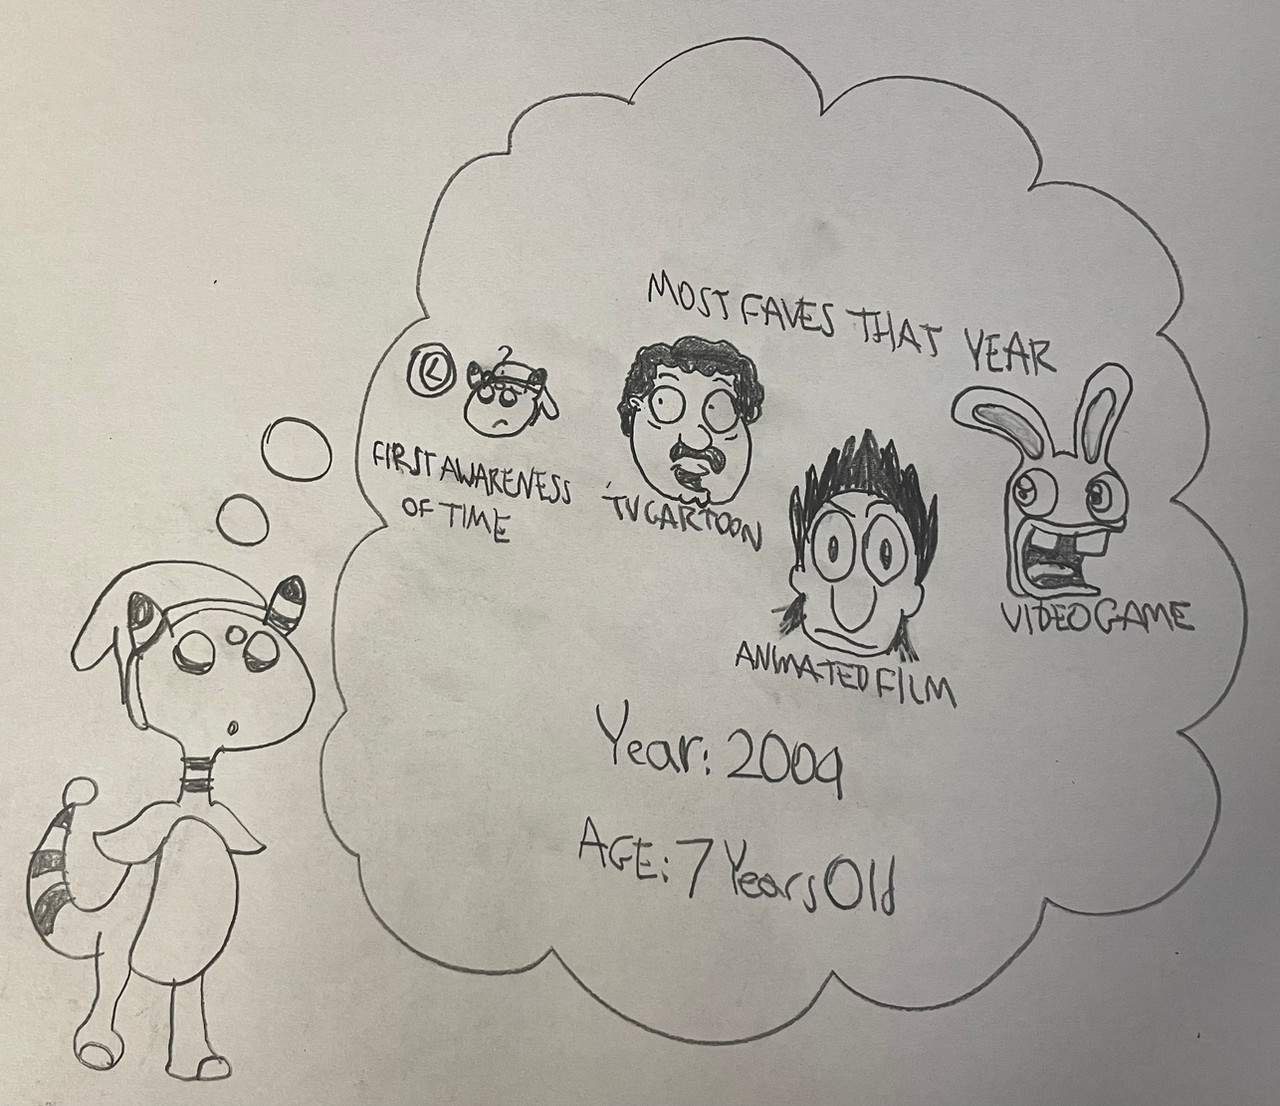 MOST FAVES THAT YEAR
?
FIRST AWARENESS
OF TIME
TV CARTOON
ANIMATED FILM
VIDEO GAME
Year: 2009
AGE: 7 Years Old